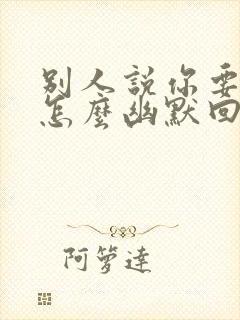 别人説你要
怎麽幽默回
阿箩達